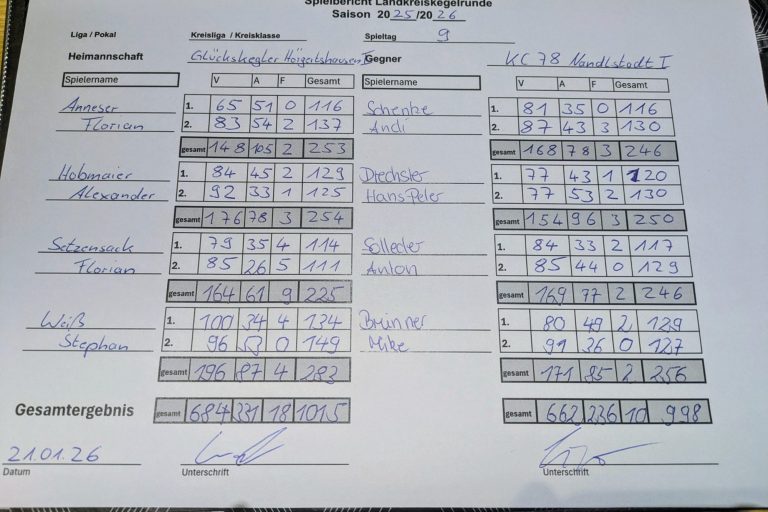 Spielbericht Landkreiskegelrunde
Saison 2025/2026
Liga / Pokal Kreisliga / Kreisklasse Spieltag 9
Heimannschaft Glückskegler Hörgertshausen I Gegner KC 78 Nandlstadt I
Spielername V A F Gesamt Spielername V A F Gesamt
Anneser 1. 65 51 0 116 Schenke 1. 81 35 0 116
Florian 2. 83 54 2 137 Andi 2. 87 43 3 130
gesamt 148 105 2 253 gesamt 168 78 3 246
Hobmaier 1. 84 45 2 129 Drechsler 1. 77 43 1 120
Alexander 2. 92 33 1 125 Hans Peter 2. 77 53 2 130
gesamt 176 78 3 254 gesamt 154 96 3 250
Setzensack 1. 79 35 4 114 Solleder 1. 84 33 2 117
Florian 2. 85 26 5 111 Anton 2. 85 44 0 129
gesamt 164 61 9 225 gesamt 169 77 2 246
Weiß 1. 100 34 4 134 Brunner 1. 80 49 2 129
Stephan 2. 96 53 0 149 Mike 2. 91 36 0 127
gesamt 196 87 4 283 gesamt 171 85 2 256
Gesamtergebnis gesamt 684 331 18 1015 gesamt 662 236 10 998
21.01.26
Datum Unterschrift Unterschrift